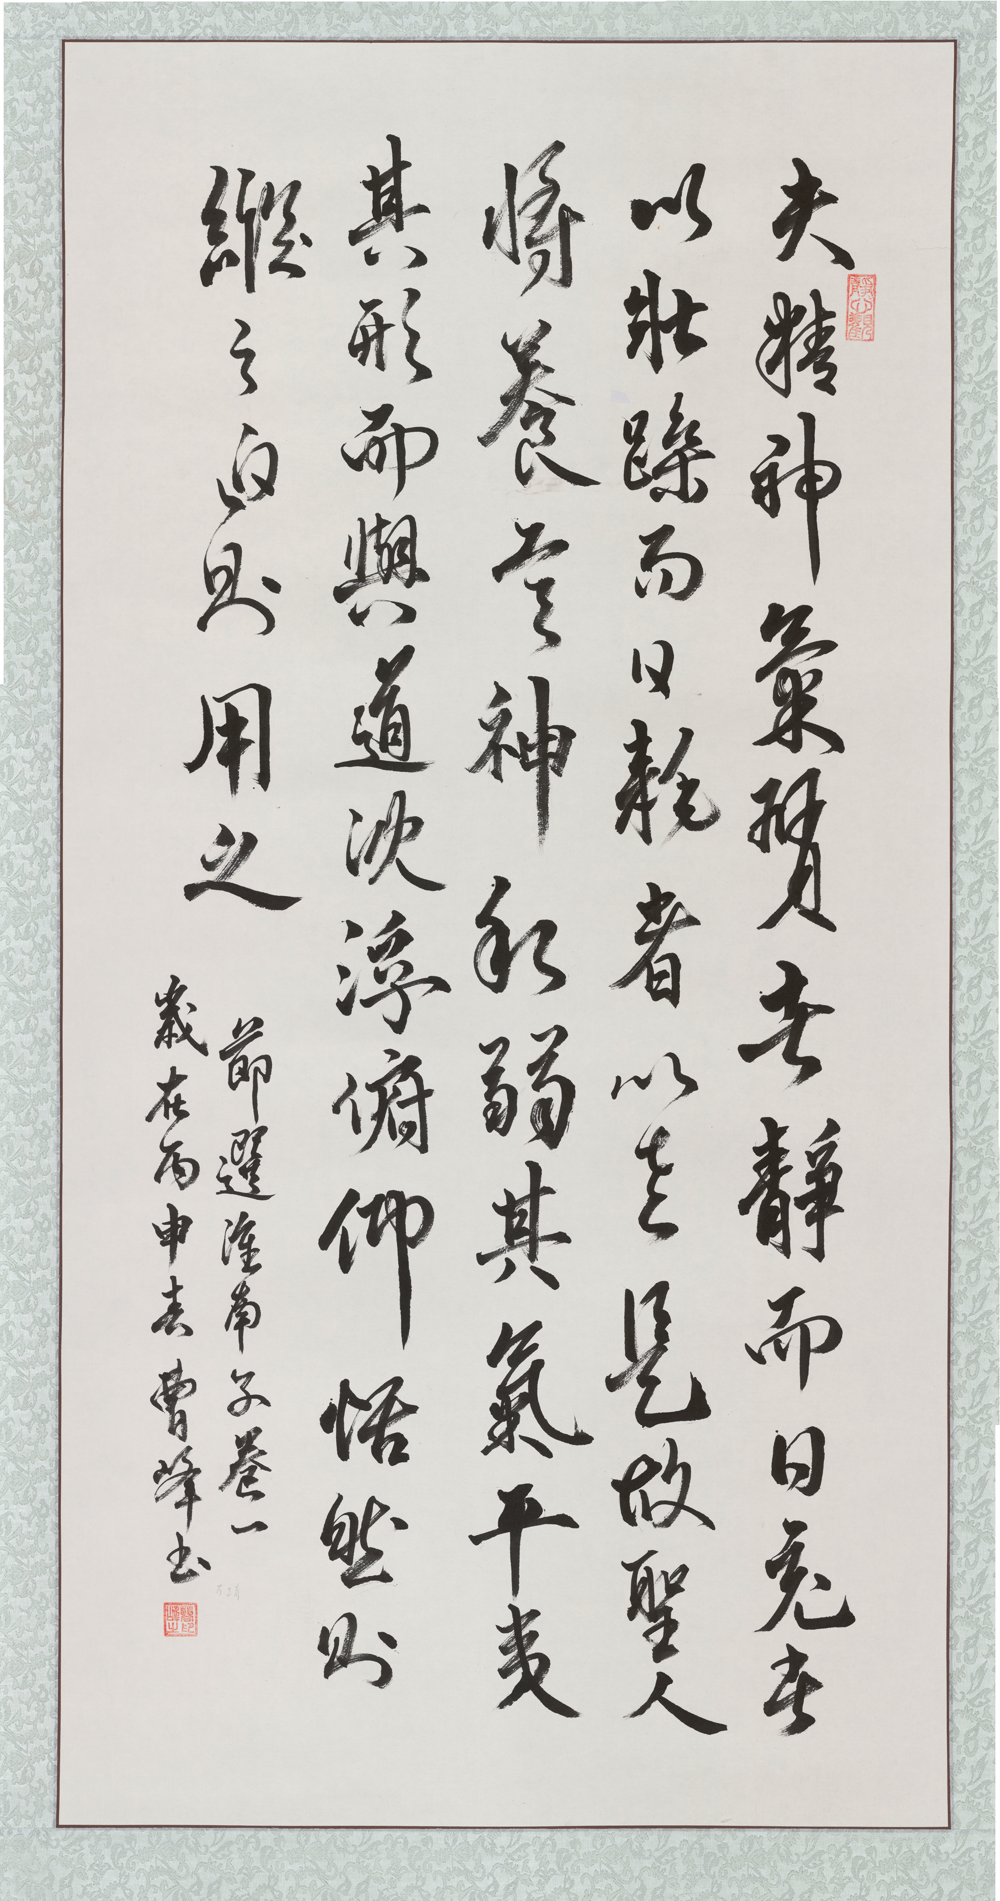 夫精神氣者靜而日充者
以壯躁而日耗者以老是故聖人
將養其神和弱其氣平夷
其形而與道沈浮俯仰恬然則
縱之迫則用之
節選淮南子卷一
歲在丙申春曹峰书